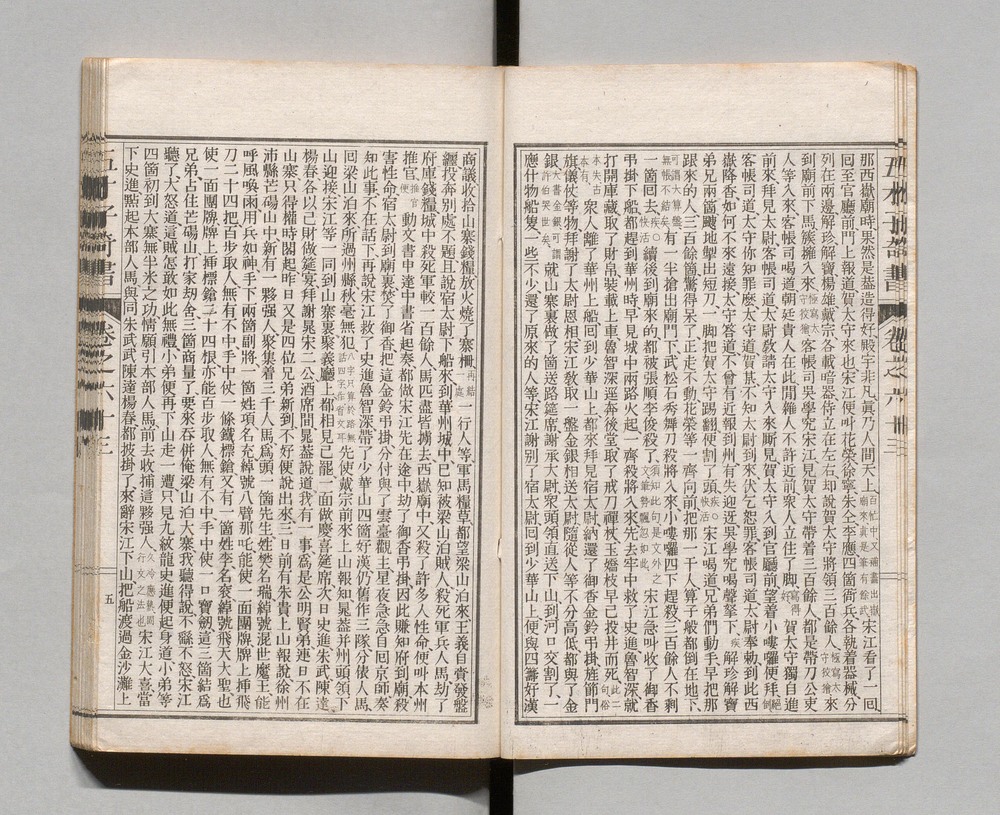 那西嶽廟時果然是葢造得好殿宇非凡真乃人間天上百忙中又補畫出嶽廟來真是筆有餘武宋江看了一回
囘至官廳前門上報道賀太守來也宋江便呌花榮徐寧朱仝李應四箇衙兵各執着器械分
列在兩邊解珍解寶楊雄戴宗各載暗器侍立在左右却說賀太守將領三百餘人極寫太守狡獪來
到廟前下馬簇擁入來極寫太守狡獪客帳司吳學究宋江見賀太守帶着三百餘人都是帶刀公吏
人等入來客帳司喝道朝廷貴人在此閒雜人不許近前衆人立住了脚寫得好賀太守獨自進
前來拜見太尉客帳司道太尉敎請太守入來厮見賀太守入到官廳前望着小嘍囉便拜絕倒
客帳司道太守你知罪麽太守道賀某不知太尉到來伏乞恕罪客帳司道太尉奉勅到此西
嶽降香如何不來遠接太守荅道不曾有近報到州有失迎迓吳學究喝聲拏下疾解珍解寶
弟兄兩箇颼地掣出短刀一脚把賀太守踢翻便割了頭疾快活宋江喝道兄弟們動手早把那
跟來的人三百餘箇驚得呆了正走不動花榮等一齊向前把那一干人算子般都倒在地下
可謂大算盤無帳不結矣有一半搶出廟門下武松石秀舞刀殺將入來小嘍囉四下趕殺三百餘人不剩
一箇囘去疾快活續後到廟來的都被張順李俊殺了須知此句是文外之文筆勢飄忽如此宋江急呌收了御香
弔掛下船都趕到華州時早見城中兩路火起一齊殺將入來先去牢中救了史進魯智深就
打開庫藏取了財帛裝載上車魯智深逕奔後堂取了戒刀禪杖玉嬌枝早已投井而死此二句俗
本失古本有衆人離了華州上船囘到少華山上都來拜見宿太尉納還了御香金鈴弔掛旌節門
旗儀仗等物拜謝了太尉恩相宋江敎取一盤金銀相送太尉隨從人等不分高低都與了金
銀大書金銀可謂許伯哭世矣就山寨裏做了箇送路筵席謝承太尉衆頭領直送下山到河口交割了一
應什物船隻一些不少還了原來的人等宋江謝別了宿太尉囘到少華山上便與四籌好漢
商議收拾山寨錢糧放火燒了寨柵再結一處一行人等軍馬糧草都望梁山泊來王義自賫發盤
纏投奔別處不題且說宿太尉下船來到華州城中已知被梁山泊賊人殺死軍兵人馬劫了
府庫錢糧城中殺死軍較一百餘人馬匹盡皆擄去西嶽廟中又殺了許多人性命便呌本州
推官推官便動文書申達中書省起奏都做宋江先在途中劫了御香弔掛因此賺知府到廟殺
害性命宿太尉到廟裏焚了御香把這金鈴弔掛分付與了雲臺觀主星夜急急自囘京師奏
知此事不在話下再說宋江救了史進魯智深帶了少華山四箇好漢仍舊作三隊分俵人馬
囘梁山泊來所過州縣秋毫無犯八字只算於路無話四字作省文耳先使戴宗前來上山報知晁葢并衆頭領下
山迎接宋江等一同到山寨裏聚義廳上都相見已罷一面做慶喜筵席次日史進朱武陳達
楊春各以己財做筵宴拜謝晁宋二公酒席間晁葢說道我有一事爲是公明賢弟連日不在
山寨只得權時閣起昨日又是四位兄弟新到不好便說出來三日前有朱貴上山報說徐州
沛縣芒碭山中新有一夥强人聚集着三千人馬爲頭一箇先生姓樊名瑞綽號混世魔王能
呼風喚雨用兵如神手下兩箇副將一箇姓項名充綽號八臂那吒能使一面團牌牌上挿飛
刀二十四把百步取人無有不中手中仗一條鐵標鎗又有一箇姓李名衮綽號飛天大聖也
使一面團牌牌上挿標鎗二十四根亦能百步取人無有不中手中使一口寶劒這三箇結爲
兄弟占住芒碭山打家劫舍三箇商量了要來吞併俺梁山泊大寨我聽得說不繇不怒宋江
聽了大怒道這賊怎敢如此無禮小弟便再下山走一遭只見九紋龍史進便起身道小弟等
四箇初到大寨無半米之功情願引本部人馬前去收捕這夥强人久冷應熱固行文之法也宋江大喜當
下史進點起本部人馬與同朱武陳達楊春都披掛了來辭宋江下山把船渡過金沙灘上
卷之六十三
五